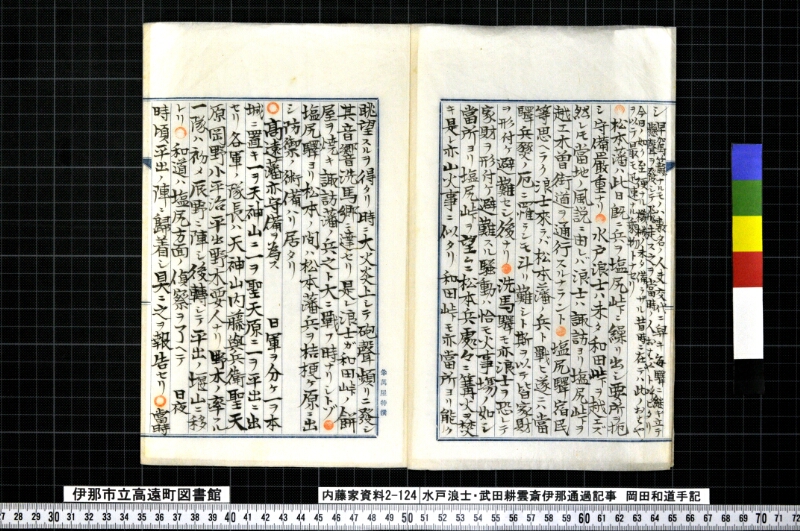 松本藩ハ此日既ニ兵ヲ塩尻峠下ニ繰リ出シ要所ヲ扼
シ守備最重ナリ○水戸浪士ハ未タ和田峠ヲ越エス
然レモ当地ノ風説ニ由レハ浪士ハ諏訪ヨリ塩尻峠ヲ
越エ木曽街道ヲ通行スルナラント○塩尻駅ノ沿民
等思ヘラク浪士来ラハ松本藩ノ兵ト戦ヒ遂ニハ当
駅兵燹ノ厄ニ罹ランモ斗リ難シト
ヲ形付ケ避難セシ後ナリ○洗馬駅モ亦浪士ヲ恐レテ
家財ヲ形付ケ避難スル騒動ハ恰モ火事場ノ如シ
当所ヨリ塩尻峠ヲ望ムニ松本兵處々ニ篝火ヲ焚
キ是レ亦山火事ニ似タリ和田峠モ亦当所ヨリ能ク
眺望スルヲ得タリ時ニ大火炎上シテ砲聲頻リニ発シ
其音響洗馬郷ニ達セリ是レ浪士ガ和田峠ノ餅
屋ヲ焼キ諏訪藩ノ兵之ト大ニ戦フ時ナリシトゾ○
塩尻駅ヨリ松本ノ間ハ松本藩兵ヲ桔梗ケ原ニ出
シ防禦ノ術備ハリ居タリ
○高遠藩亦守備ヲ為ス 曰軍ヲ分ケ一ヲ本
城ニ置キ一ヲ天神山ニ一ヲ聖天原ニ一ヲ平出ニ出
セリ各軍ノ隊長ハ天神山内藤與兵衛聖天
原岡野小平治平出野木要人ナリ野木率ル
一隊ハ初メ辰野ニ陣シ後轉シテ平出ノ堰山ニ移
レリ○和道ハ塩尻方面ノ偵察ヲ了ヘテ日夜
時頃平出ノ陣ニ歸着シ具ニ之ヲ報告セリ○当時
伊那市立高遠町図書館
内藤家資料2-124 水戸浪士・武田耕雲斎伊那通過記事 岡田和道手記